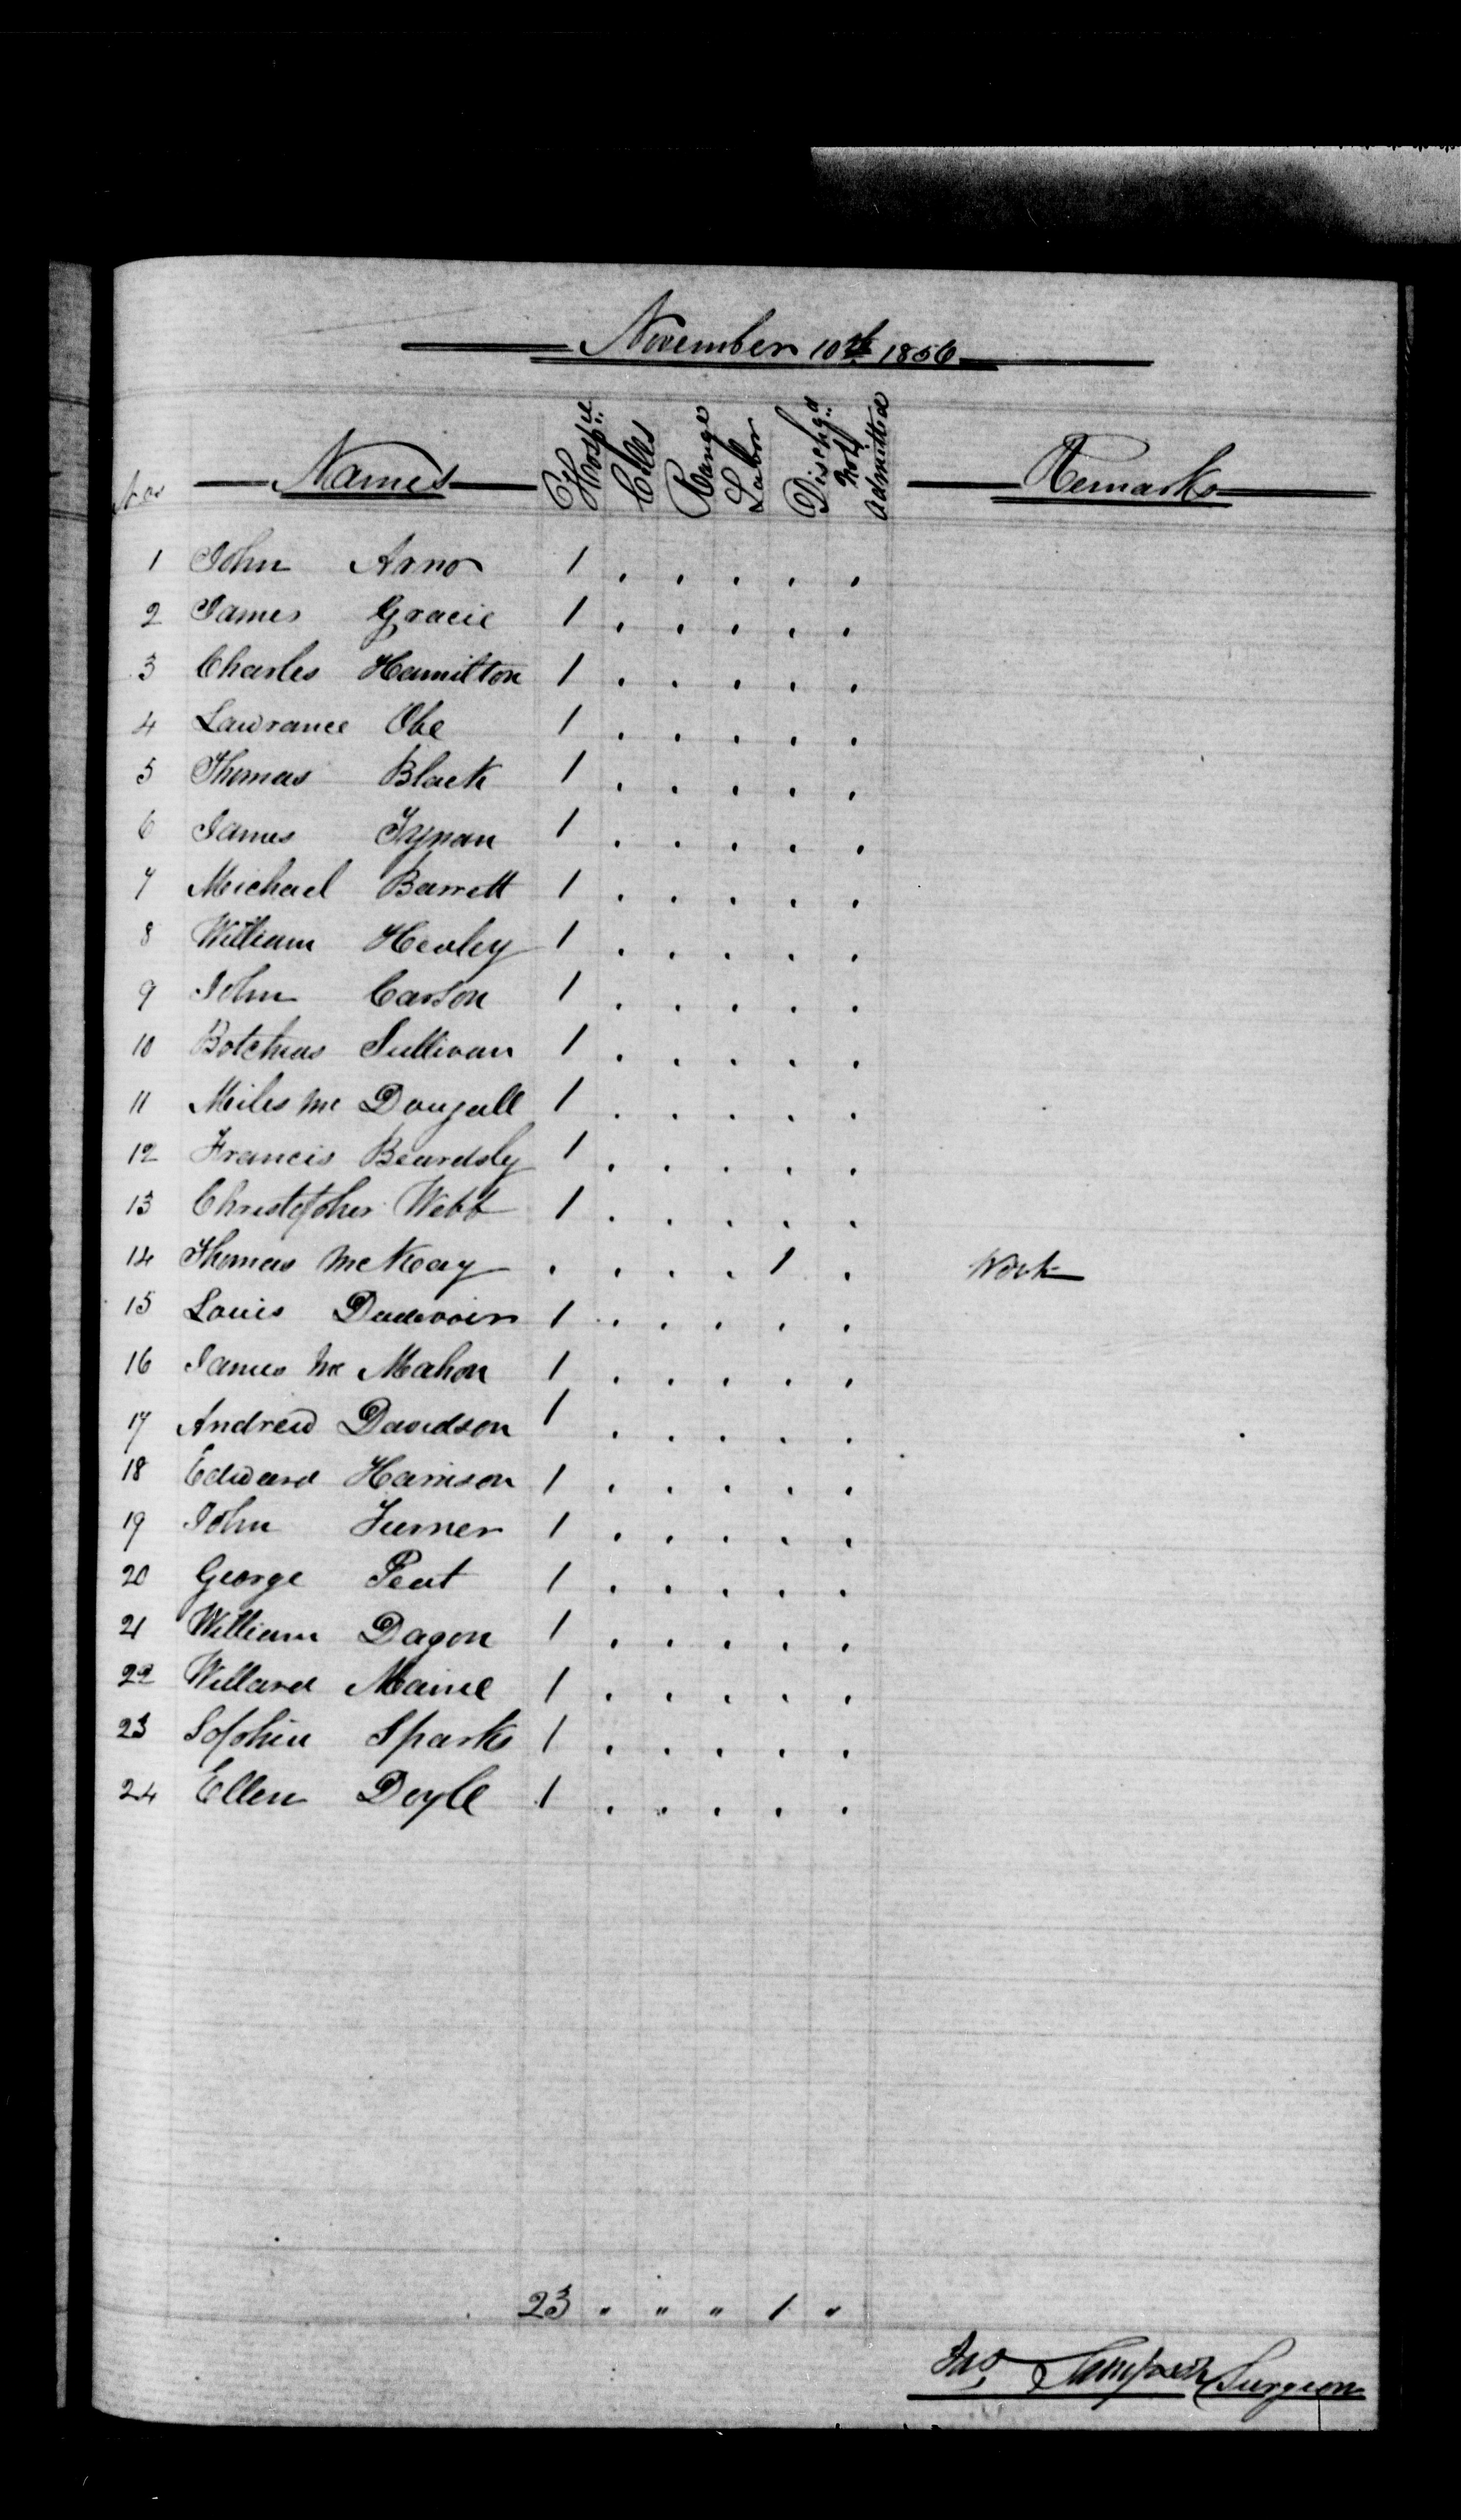 November 10th 1856
Nos Names Hospl Cells Range Labor Dischgd Not Admitted Remarks
1 John Arno 1 . . . . .
2 James Gracie 1 . . . . .
3 Charles Hamilton 1 . . . . .
4 Lawrance Obe 1 . . . . .
5 Thomas Black 1 . . . . .
6 James Tynan 1 . . . . .
7 Michael Barrett 1 . . . . .
8 William Hevley 1 . . . . .
9 John Carson 1 . . . . .
10 Sullivan 1 . . . . .
11 Miles Mc Dougall 1 . . . . .
12 Francis Beardsly 1 . . . . .
13 Christopher Webb 1 . . . . .
14 Thomas McKay . . . . 1 . Work
15 Louis 1 . . . . .
16 James Mc Mahon 1 . . . . .
17 Andrew Davidson 1 . . . . .
18 Edward Harrison 1 . . . . .
19 John Turner 1 . . . . .
20 George Peat 1 . . . . .
21 William Dagon 1 . . . . .
22 Willard Maine 1 . . . . .
23 Sophia Sparks 1 . . . . .
24 Ellen Doyle 1 . . . . .
23 " " " 1 "
Jas Sampson Surgeon